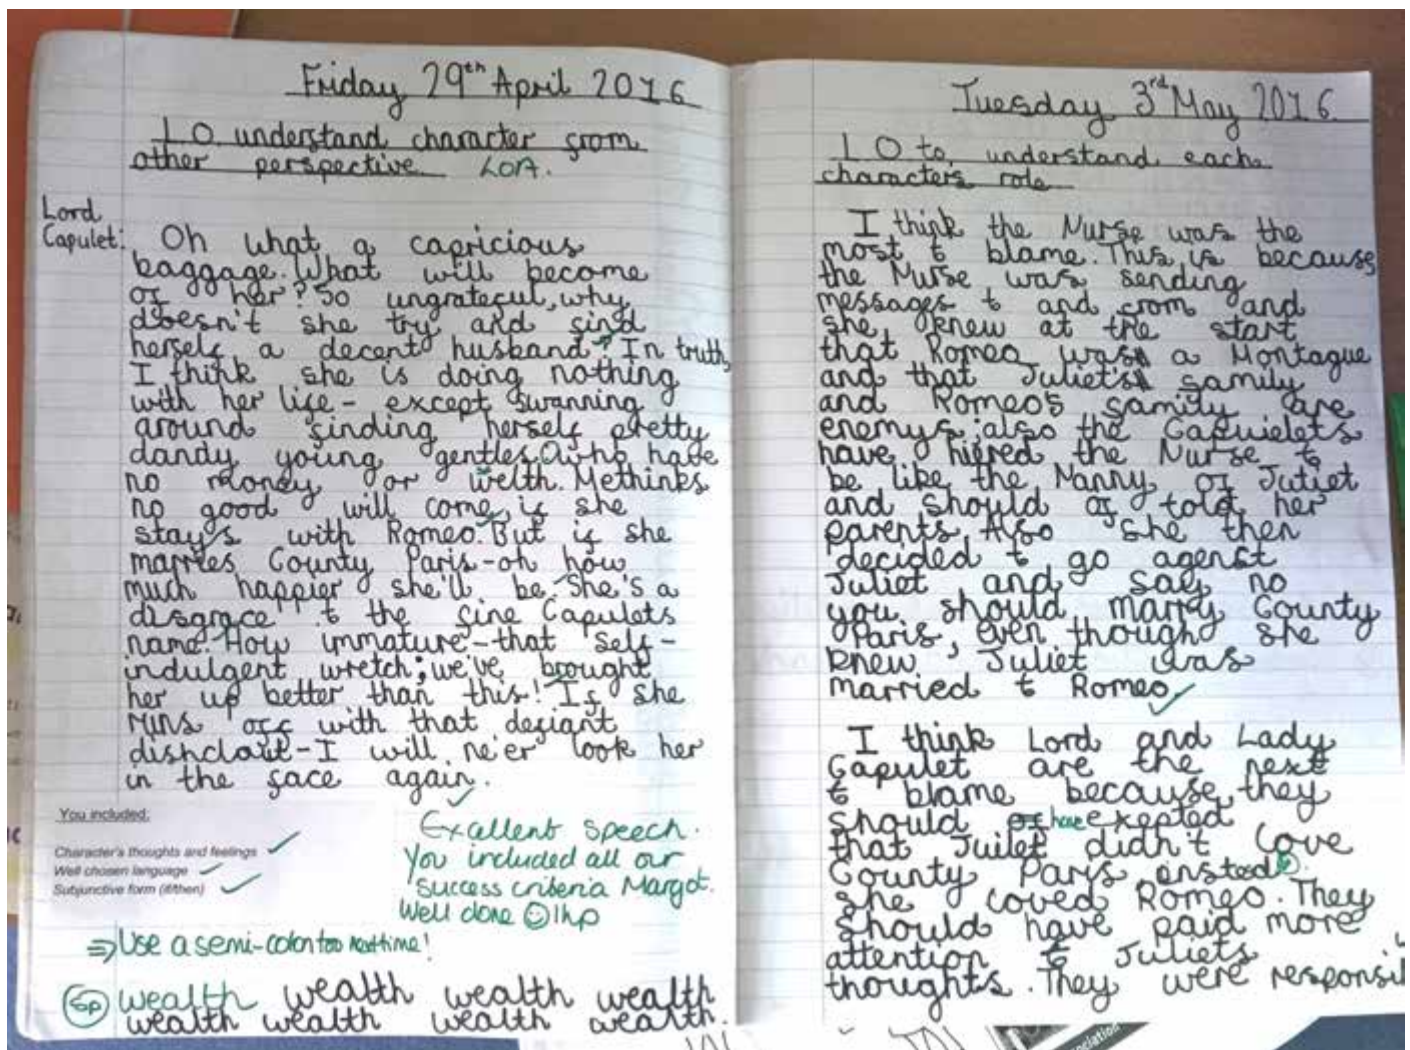 Friday 29th April 2016
L O understand character from
other perspective LOA.
Lord
Capulet: Oh what a capricious
baggage. What will become
of her? So ungrateful, why
doesn't she try and find
herself a decent husband? In truth
I think she is doing nothing
with her life - except swanning
around finding herself pretty
dandy young gentles who have
no money or welth. Methinks
no good will come if she
stay's with Romeo. But if she
marries County Paris - oh how
much happier she'll be. She's a
disgrace to the fine Capulets
name. How immature - that self-
indulgent wretch; we've brought
her up better than this! If she
runs off with that defiant
dishclout - I will ne'er look her
in the face again.
You included:
Character's thoughts and feelings
Well chosen language
Subjunctive form (if/then)
Excellent speech.
You included all our
success criteria Margot.
Well done 1hp
⇒ Use a semi-colon too next time!
Sp wealth wealth wealth wealth
wealth wealth wealth wealth.
Tuesday 3rd May 2016
L O to understand each
characters role
I think the Nurse was the
most to blame. This is because
the Nurse was sending
messages to and from and
she knew at the start
that Romeo was a Montague
and that Juliet's family
and Romeos family are
enemys; also the Capuielets
have hiered the Nurse to
be like the Nanny of Juliet
and should of told her
parents. Also she then
decided to go agenst
Juliet and say no
you should marry County
Paris, even though she
knew Juliet was
married to Romeo
I think Lord and Lady
Capulet are the next
to blame because they
should of have exepted
that Juilet didn't love
County Paris ensted
she loved Romeo. They
should have paid more
attention to Juliets
thoughts. They were responsi
ciation